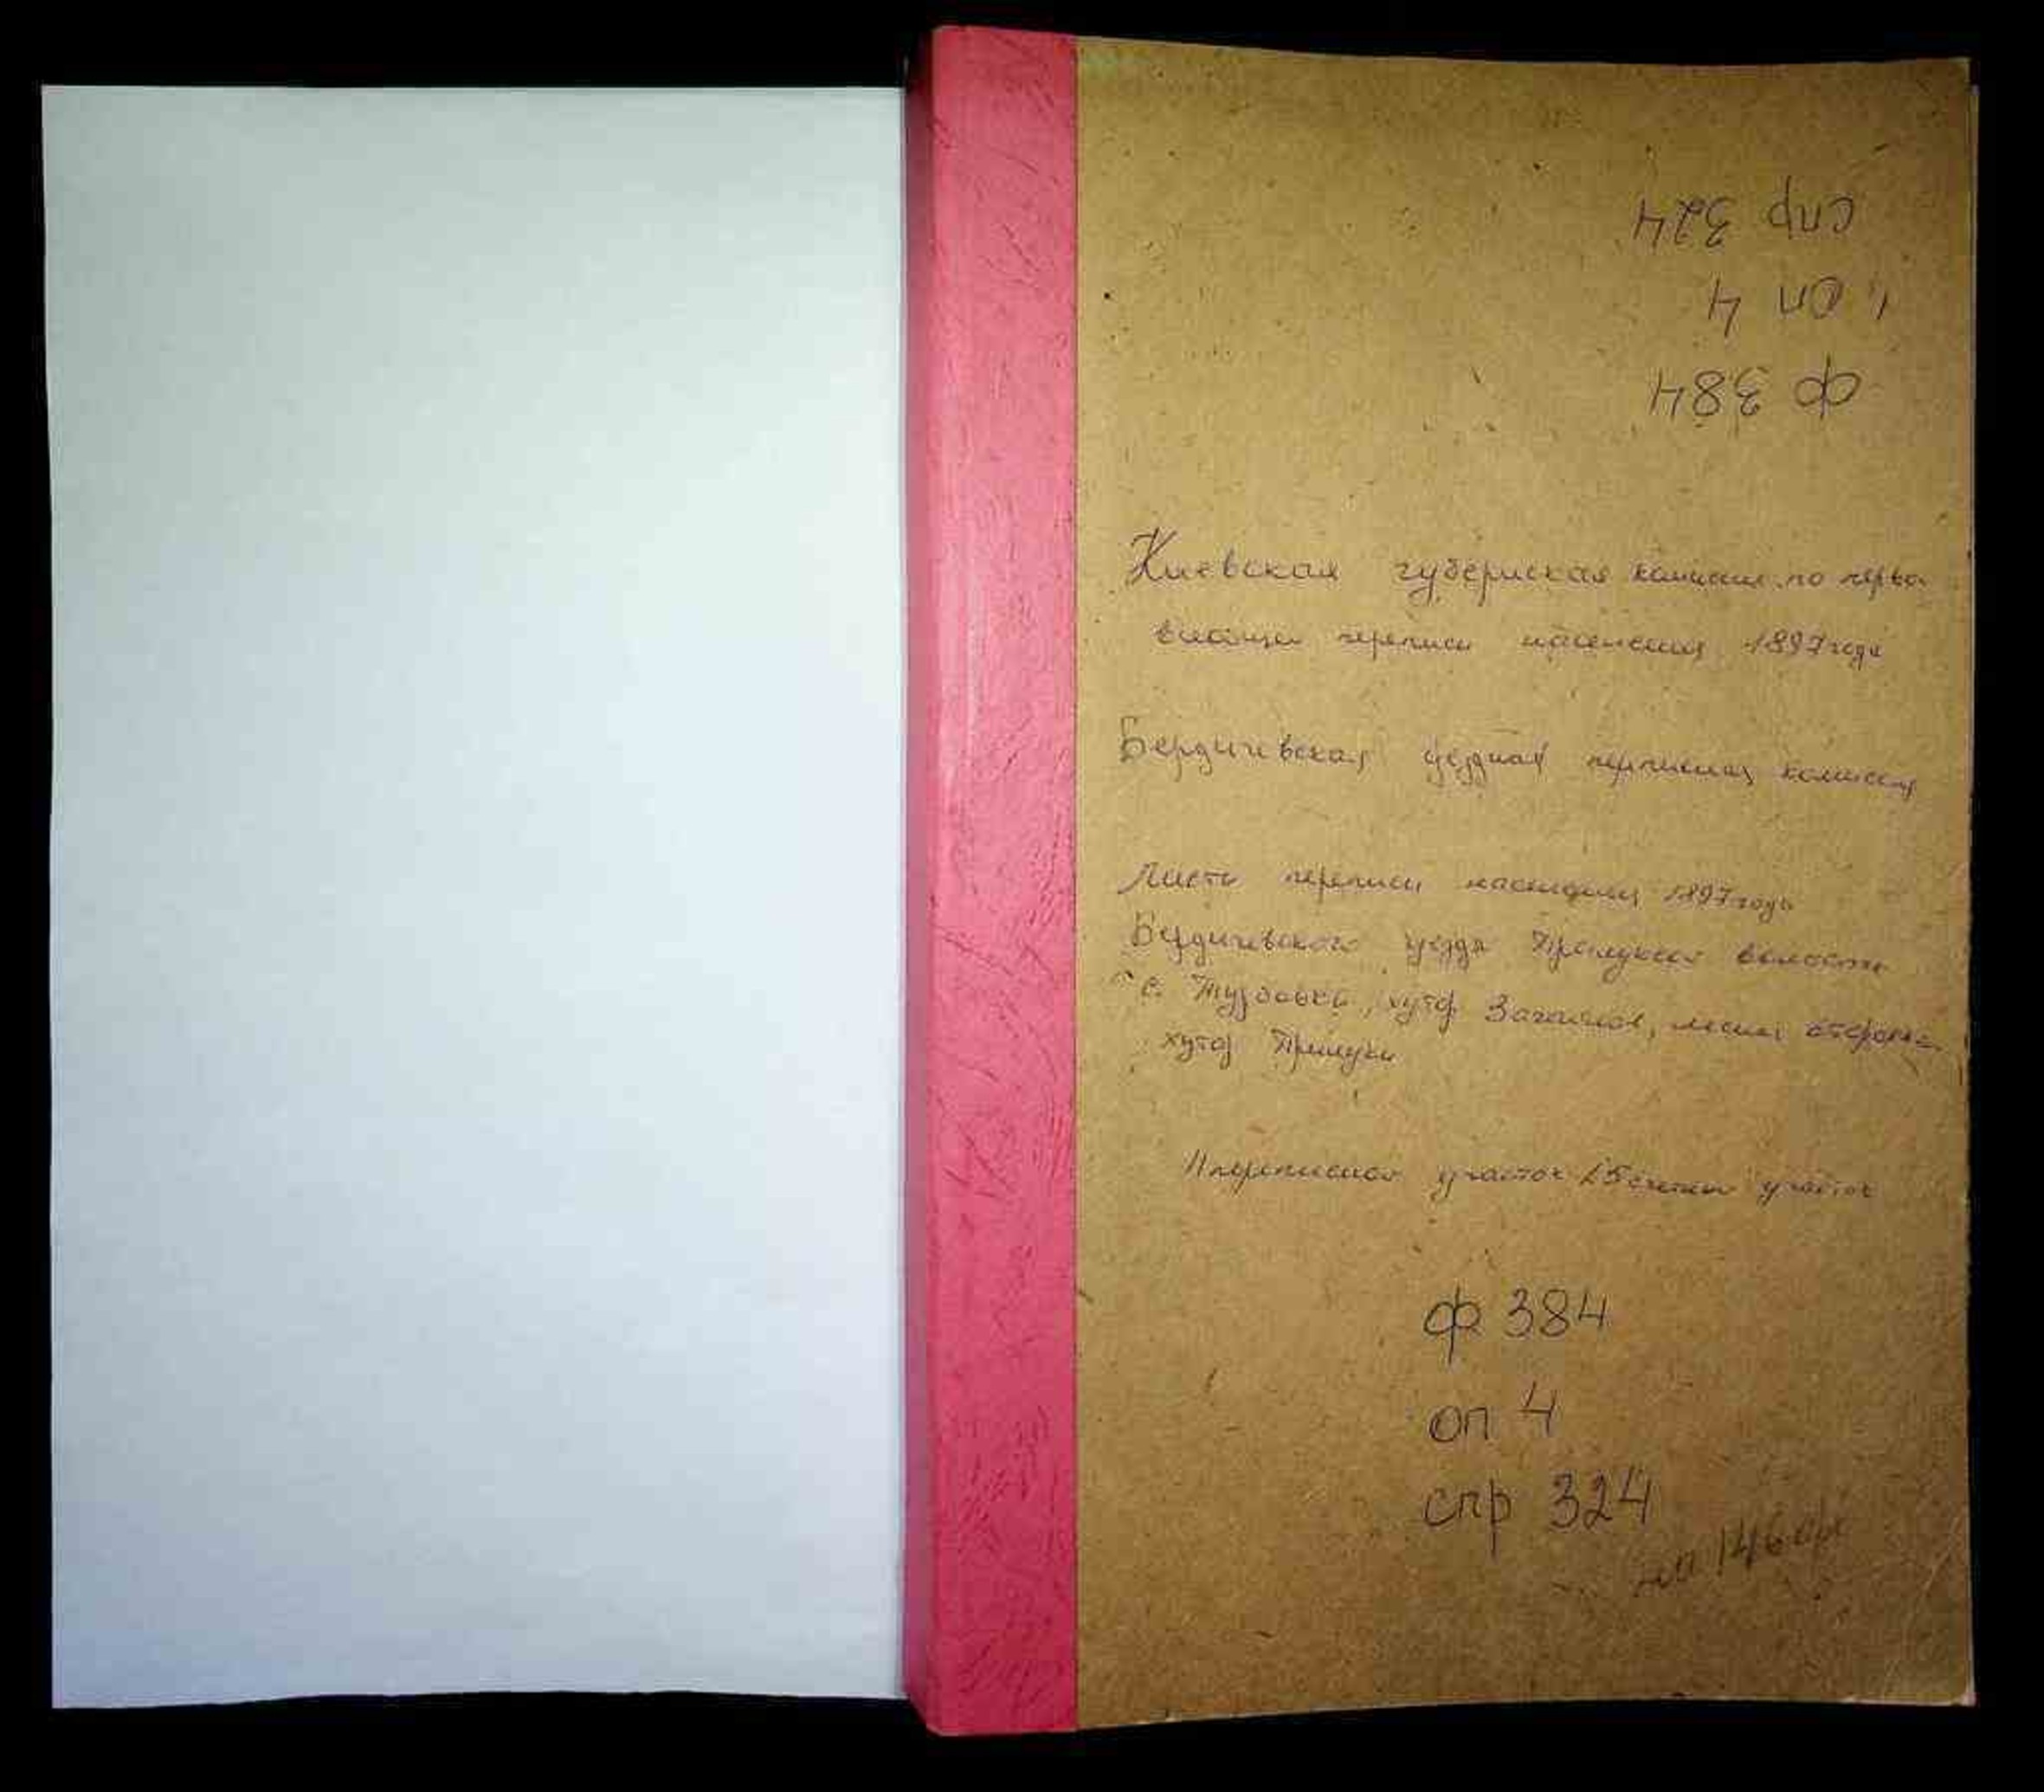 спр 324
оп 4
ф 384
Киевская губернская комиссия по перво
всеобщей переписи населения 1897 года
Бердичевская уездная переписная комиссия
Листы переписи населения 1897 года
Бердичевского уезда Прилукской волости
с. Турбовка, хутор лесная сторожка
хутор Прилуки
переписной участок 15 счетный участок
ф 384
оп 4
спр 324
146 арк